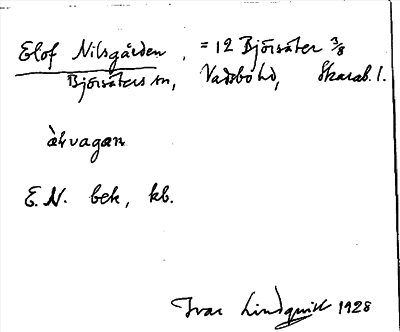 Elof Nilsgården, = 12 Björsäter 3/8
Björsäters sn, Vadsbo hd, Skarab. l.
àkvagan
E.N. bek, kb.
Ivar Lindquist 1928